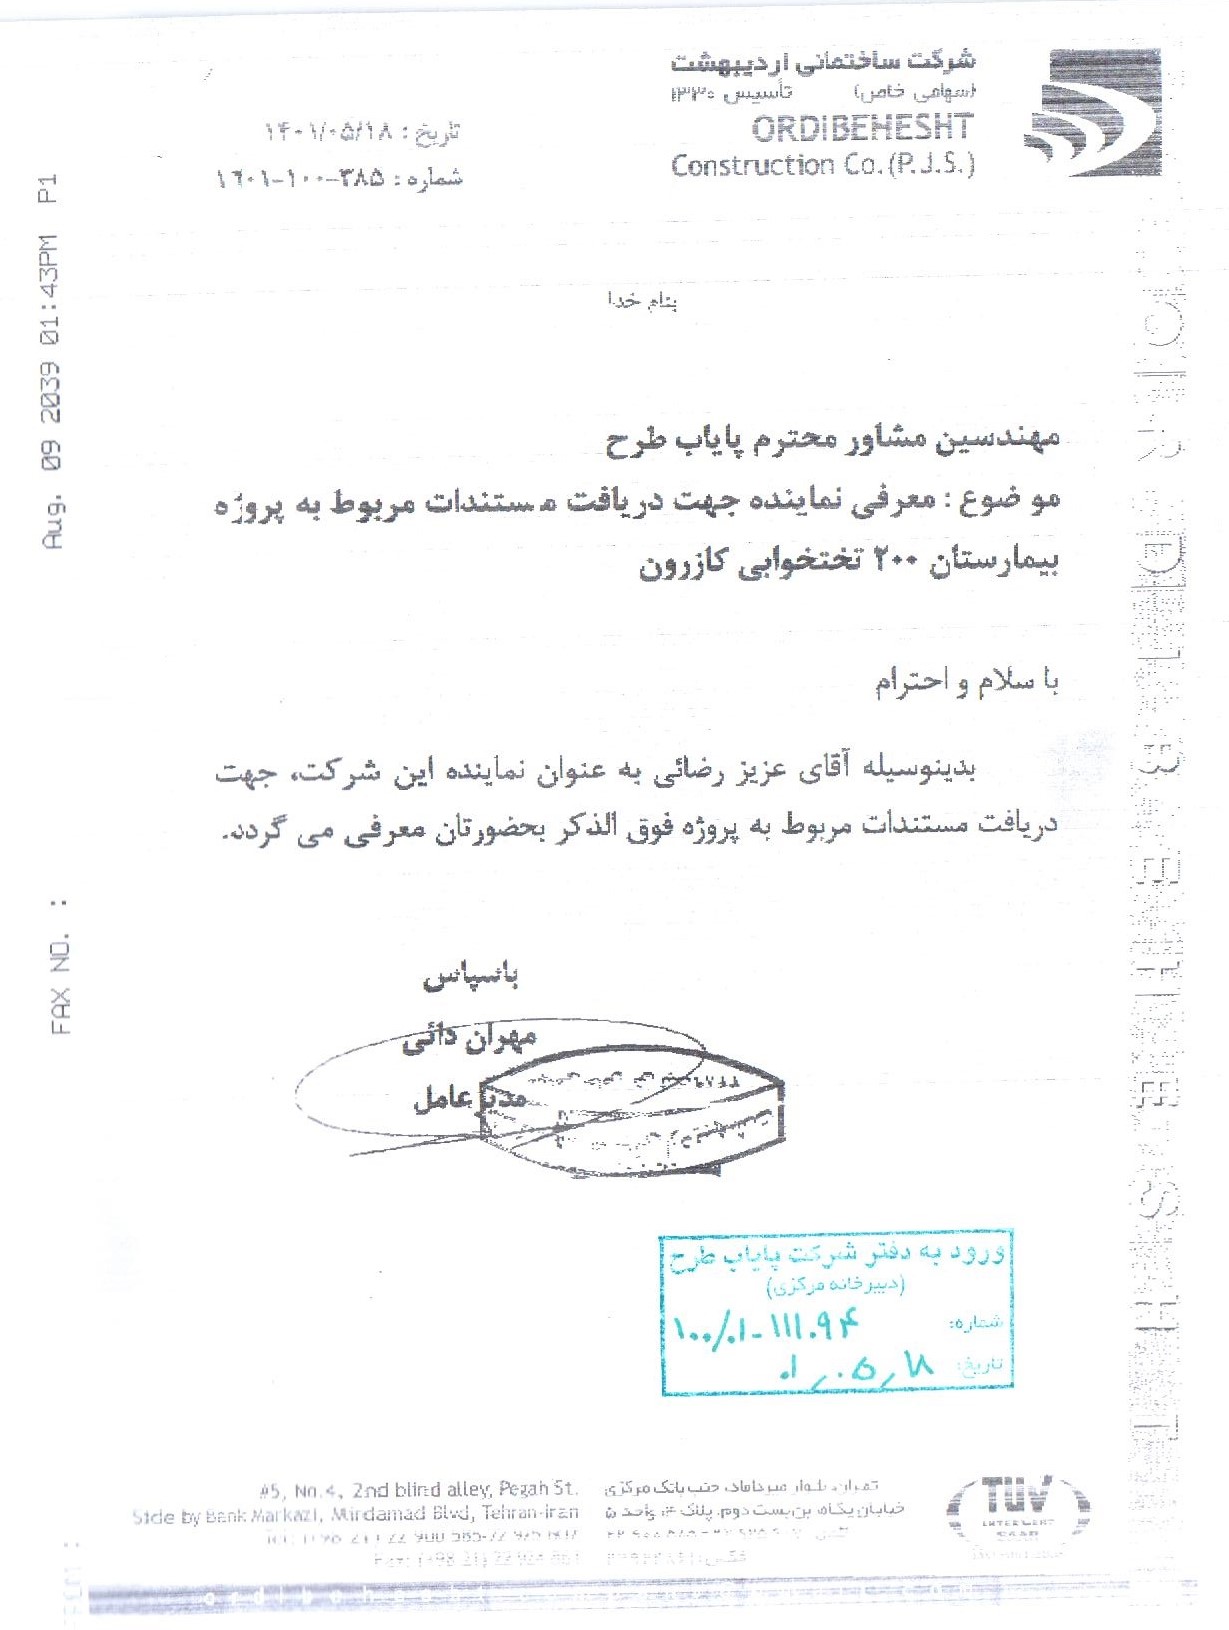 شرکت ساختمانی اردیبهشت
(سهامی خاص) تأسیس ۱۳۳۰
ORDIBEHESHT
Construction Co. (P.J.S.)
تاریخ : ۱۴۰۱/۰۵/۱۸
شماره : ۳۸۵-۱۰۰-۱۶۰۱
Aug. 09 2039 01:43PM P1
FAX NO. :
بنام خدا
مهندسین مشاور محترم پایاب طرح
موضوع : معرفی نماینده جهت دریافت مستندات مربوط به پروژه
بیمارستان ۲۰۰ تختخوابی کازرون
با سلام و احترام
بدینوسیله آقای عزیز رضائی به عنوان نماینده این شرکت، جهت
دریافت مستندات مربوط به پروژه فوق الذکر بحضورتان معرفی می گردد.
باسپاس
مهران دائی
مدیر عامل
ورود به دفتر شرکت پایاب طرح
(دبیرخانه مرکزی)
شماره: ۱۰۰/۰۱-۱۱۱۰۹۴
تاریخ: ۰۱/۰۵/۱۸
تهران، بلوار میرداماد، جنب بانک مرکزی
خیابان پگاه، بن بست دوم، پلاک ۴، واحد ۵
#5, No.4, 2nd blind alley, Pegah St.
Side by Bank Markazi, Mirdamad Blvd, Tehran-Iran
TUV
INTERCERT
SAAR
ORDIBEHESHT